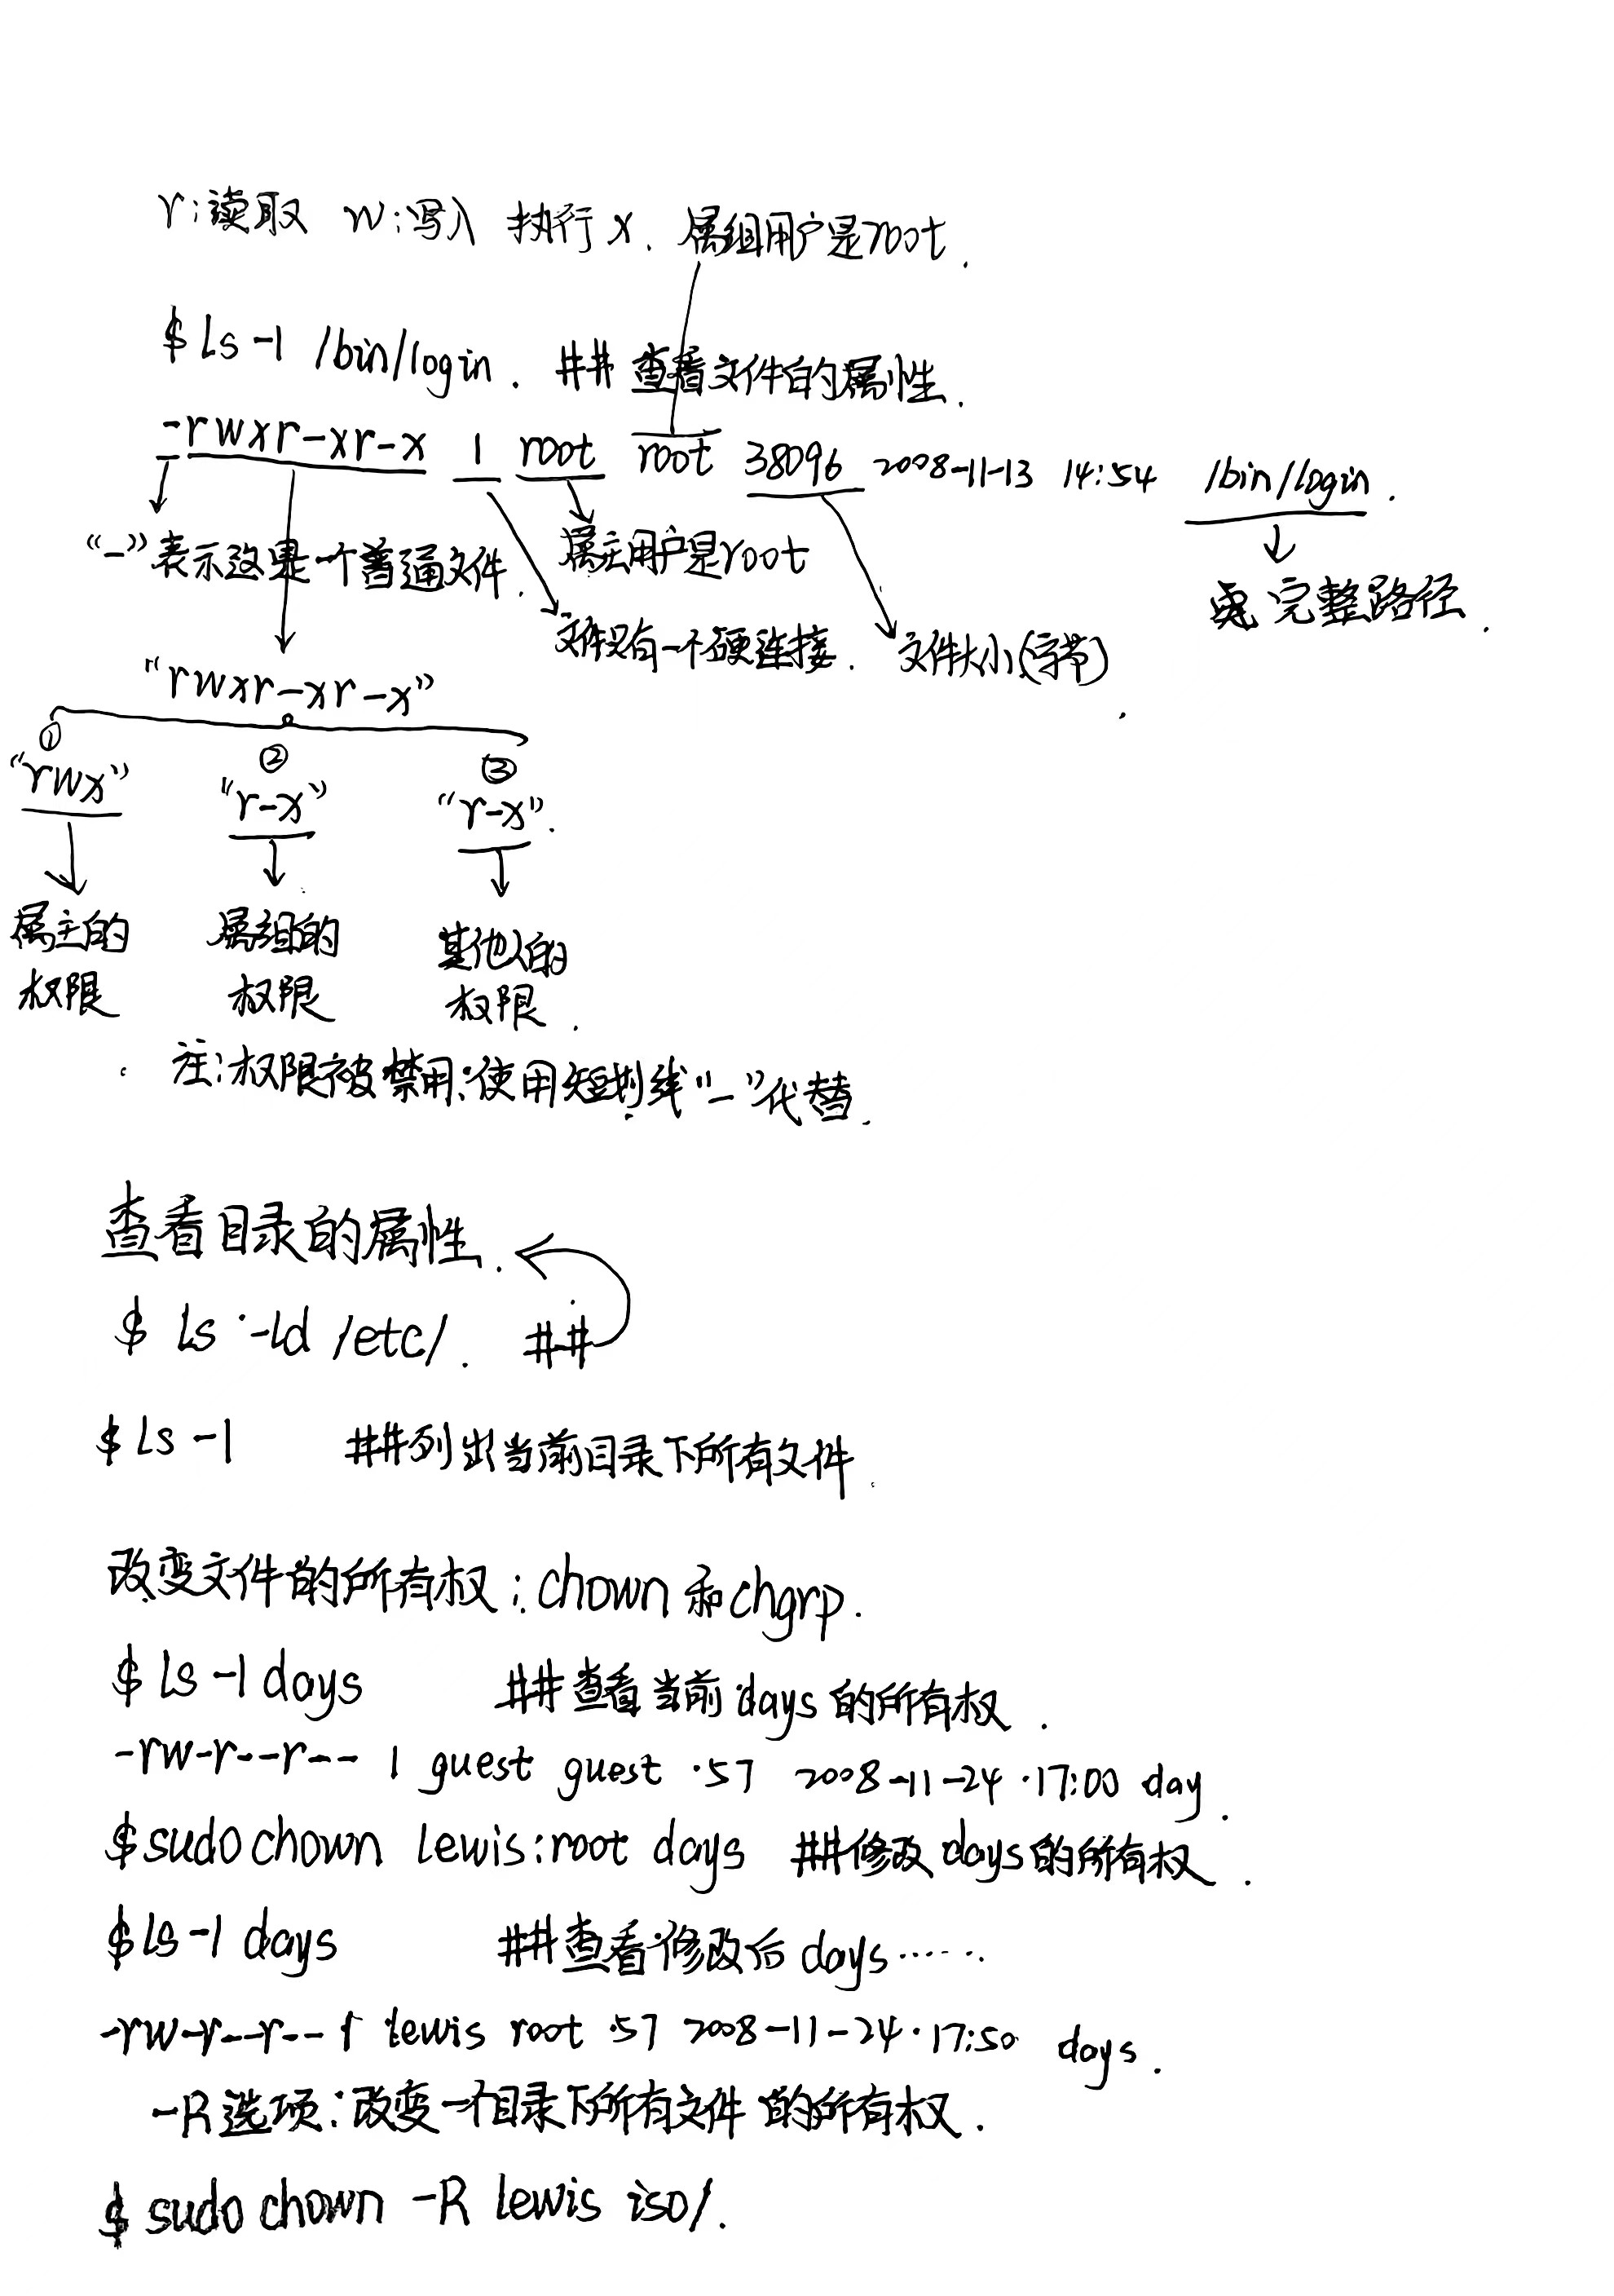 r:读取 w:写入 执行x. 属组用户是root.
$ls -l /bin/login. ## 查看文件的属性.
-rwxr-xr-x 1 root root 38096 2008-11-13 14:54 /bin/login.
“-”表示这是一个普通文件. 属主用户是root
完整路径.
文件只有一个硬连接. 文件大小(字节)
“rwxr-xr-x”
① ② ③
“rwx” “r-x” “r-x”.
属主的 属组的 其他人的
权限 权限 权限.
注:权限被禁用:使用短划线“-”代替.
查看目录的属性.
$ ls -ld /etc/. ##
$ls -l ##列出当前目录下所有文件.
改变文件的所有权:chown和chgrp.
$ls -l days ##查看当前days的所有权.
-rw-r--r-- 1 guest guest 57 2008-11-24 17:00 day.
$sudo chown lewis:root days ##修改days的所有权.
$ls -l days ##查看修改后days……
-rw-r--r-- 1 lewis root 57 2008-11-24 17:50 days.
-R选项:改变一个目录下所有文件的所有权.
$ sudo chown -R lewis iso/.